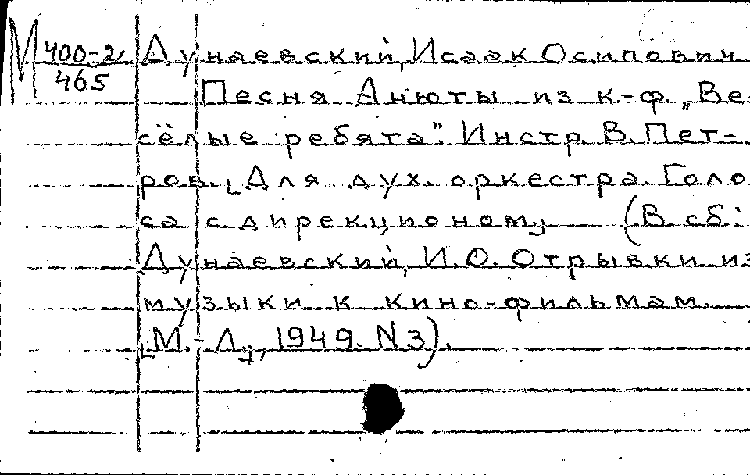 М 400-2
465
Дунаевский, Исаак Осипович
Песня Анюты из к-ф. „Ве-
сёлые ребята". Инстр. В. Пет-
ров. [Для дух. оркестра. Голо
са с дирекционом] (В сб.:
Дунаевский, И.О. Отрывки из
музыки к кино-фильмам.
[М.-Л.], 1949. N 3).